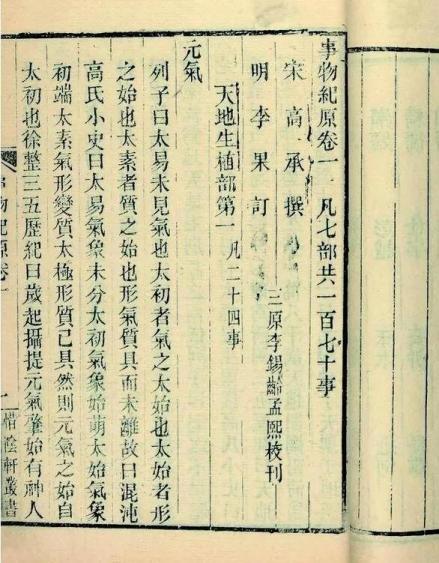 事物紀原卷一 凡七部共一百七十事
宋 高 承 撰
明 李 果 訂
三原李錫齡孟熙校刊
天地生植部第一 凡二十四事
元氣
列子曰太易未見氣也太初者氣之太始也太始者形
之始也太素者質之始也形氣質具而未離故曰混沌
高氏小史曰太易氣象未分太初氣象始萌太始氣象
初端太素氣形變質太極形質已具然則元氣之始自
太初也徐整三五歷紀曰歲起攝提元氣肇始有神人
事物紀原卷一
一
惜陰軒叢書